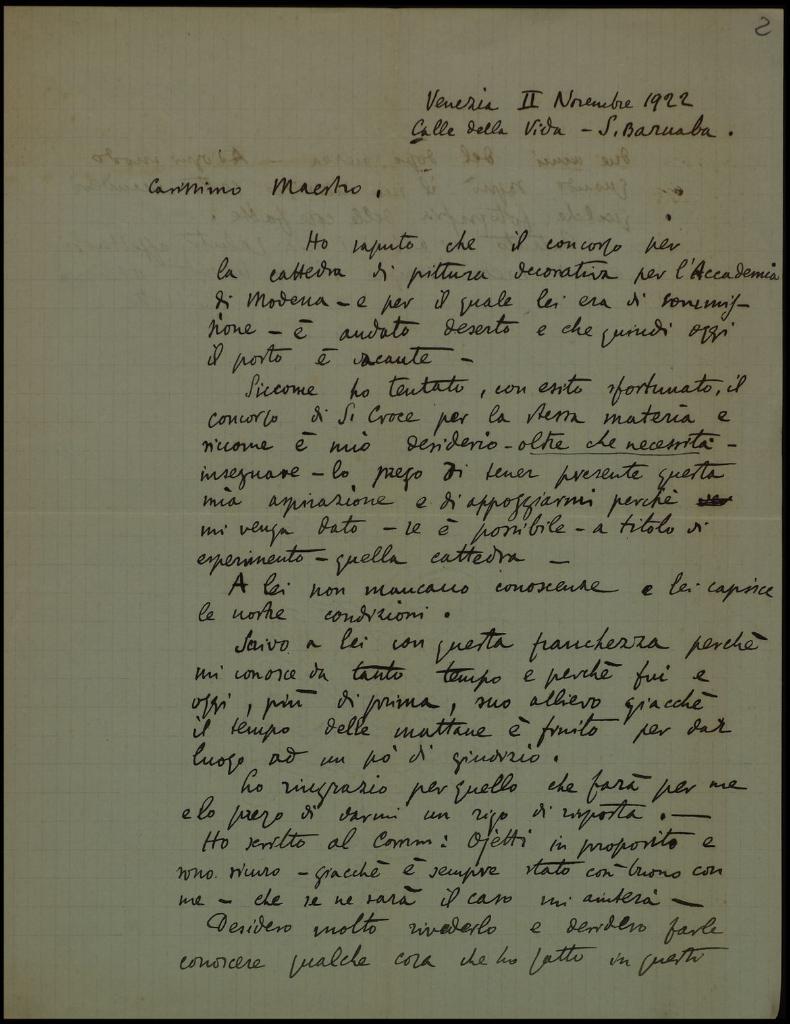 2
Venezia II Novembre 1922
Calle della Vida - S. Barnaba.
Carissimo Maestro,
Ho saputo che il concorso per
la cattedra di pittura decorativa per l'Accademia
di Modena - e per il quale lei era di commis-
sione - è andato deserto e che quindi oggi
il posto è vacante -
Siccome ho tentato, con esito sfortunato, il
concorso di S. Croce per la stessa materia e
siccome è mio desiderio - oltre che necessità -
insegnare - lo prego di tener presente questa
mia aspirazione e di appoggiarmi perchè
mi venga dato - se è possibile - a titolo di
esperimento - quella cattedra -
A lei non mancano conoscenze e lei capisce
le nostre condizioni.
Scrivo a lei con questa franchezza perchè
mi conosce da tanto tempo e perchè fui e
oggi, più di prima, suo allievo giacchè
il tempo delle mattane è finito per dar
luogo ad un pò di giudizio.
Lo ringrazio per quello che farà per me
e lo prego di darmi un rigo di risposta. -
Ho scritto al Comm: Ojetti in proposito e
sono sicuro - giacchè è sempre stato così buono con
me - che se ne sarà il caso mi aiuterà -
Desidero molto rivederlo e desidero farle
conoscere qualche cosa che ho fatto in questi